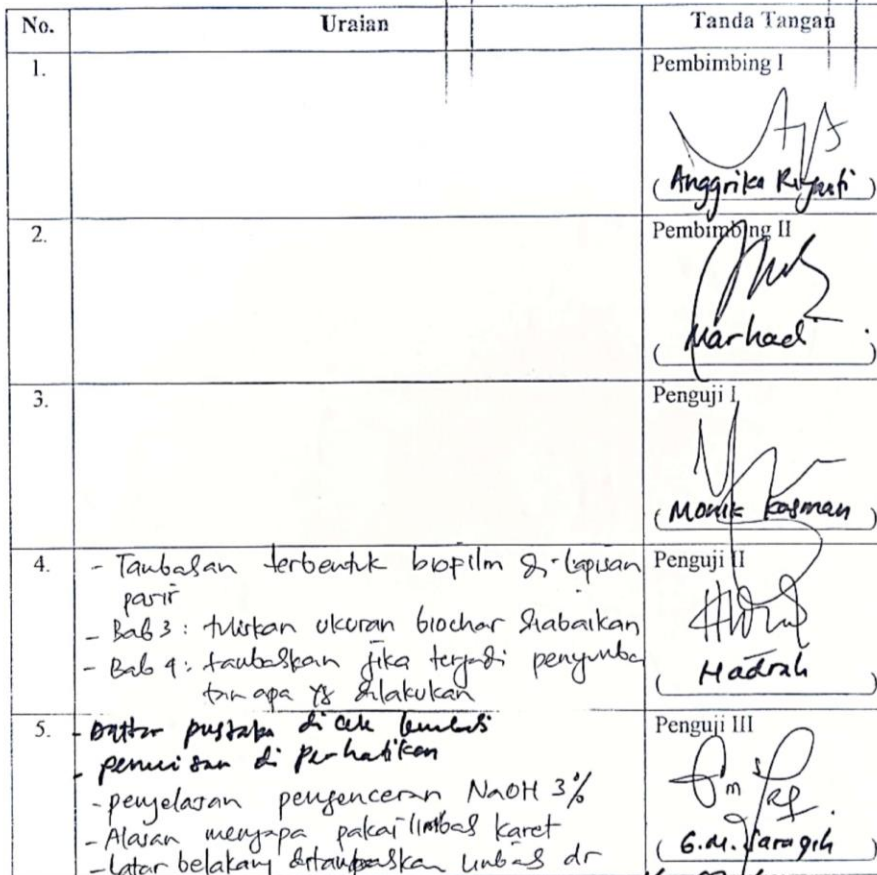 No. Uraian Tanda Tangan
1. Pembimbing I
(Anggrika Riyanti)
2. Pembimbing II
(Marhadi)
3. Penguji I
(Monik Kasman)
4. - Tambahan terbentuk biopilm di lapisan Penguji II
pasir
- Bab 3: tuliskan ukuran biochar
- Bab 4: tambahkan jika terjadi penyumba
tan apa yg dilakukan
(Hadrah)
5. - Daftar pustaka di cek kembali Penguji III
- penulisan di perhatikan
- penjelasan pengenceran NaOH 3%
- Alasan mengapa pakai limbah karet
- Latar belakang ditambahkan limbah dr
(G.M. Saragih)